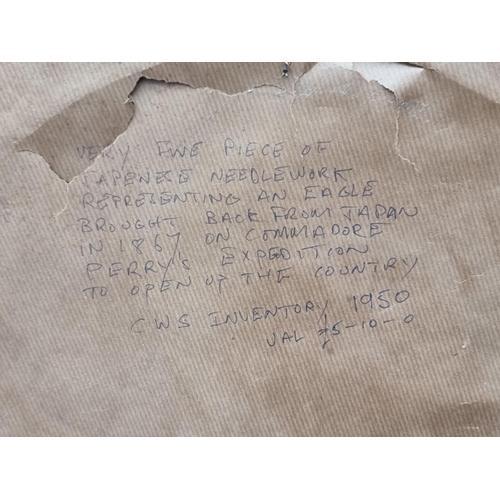 VERY FINE PIECE OF
JAPENESE NEEDLEWORK
REPRESENTING AN EAGLE
BROUGHT BACK FROM JAPAN
IN 1867 ON COMMADORE
PERRY'S EXPEDITION
TO OPEN UP THE COUNTRY
CWS INVENTORY 1950
VAL £5-10-0